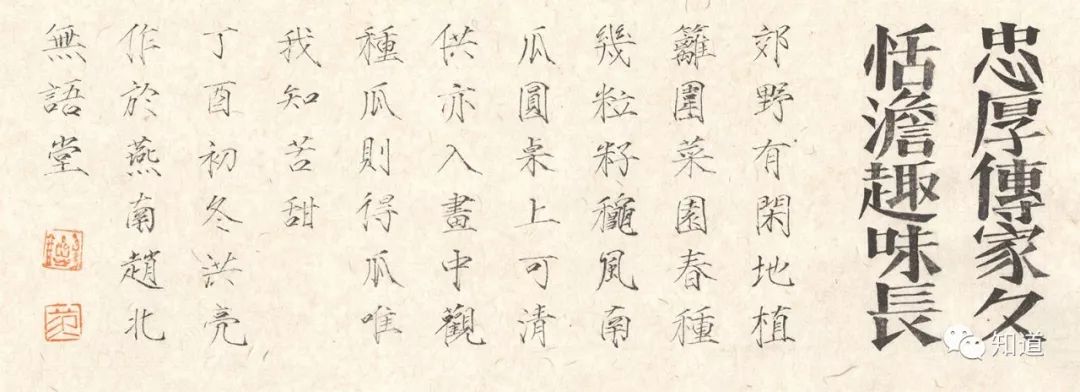 忠厚傳家久
恬澹趣味長
郊野有閑地植
籬圍菜園春種
幾粒籽穐風南
瓜圓桌上可清
供亦入畫中觀
種瓜則得瓜唯
我知苦甜
丁酉初冬洪亮
作於燕南趙北
無語堂
知道